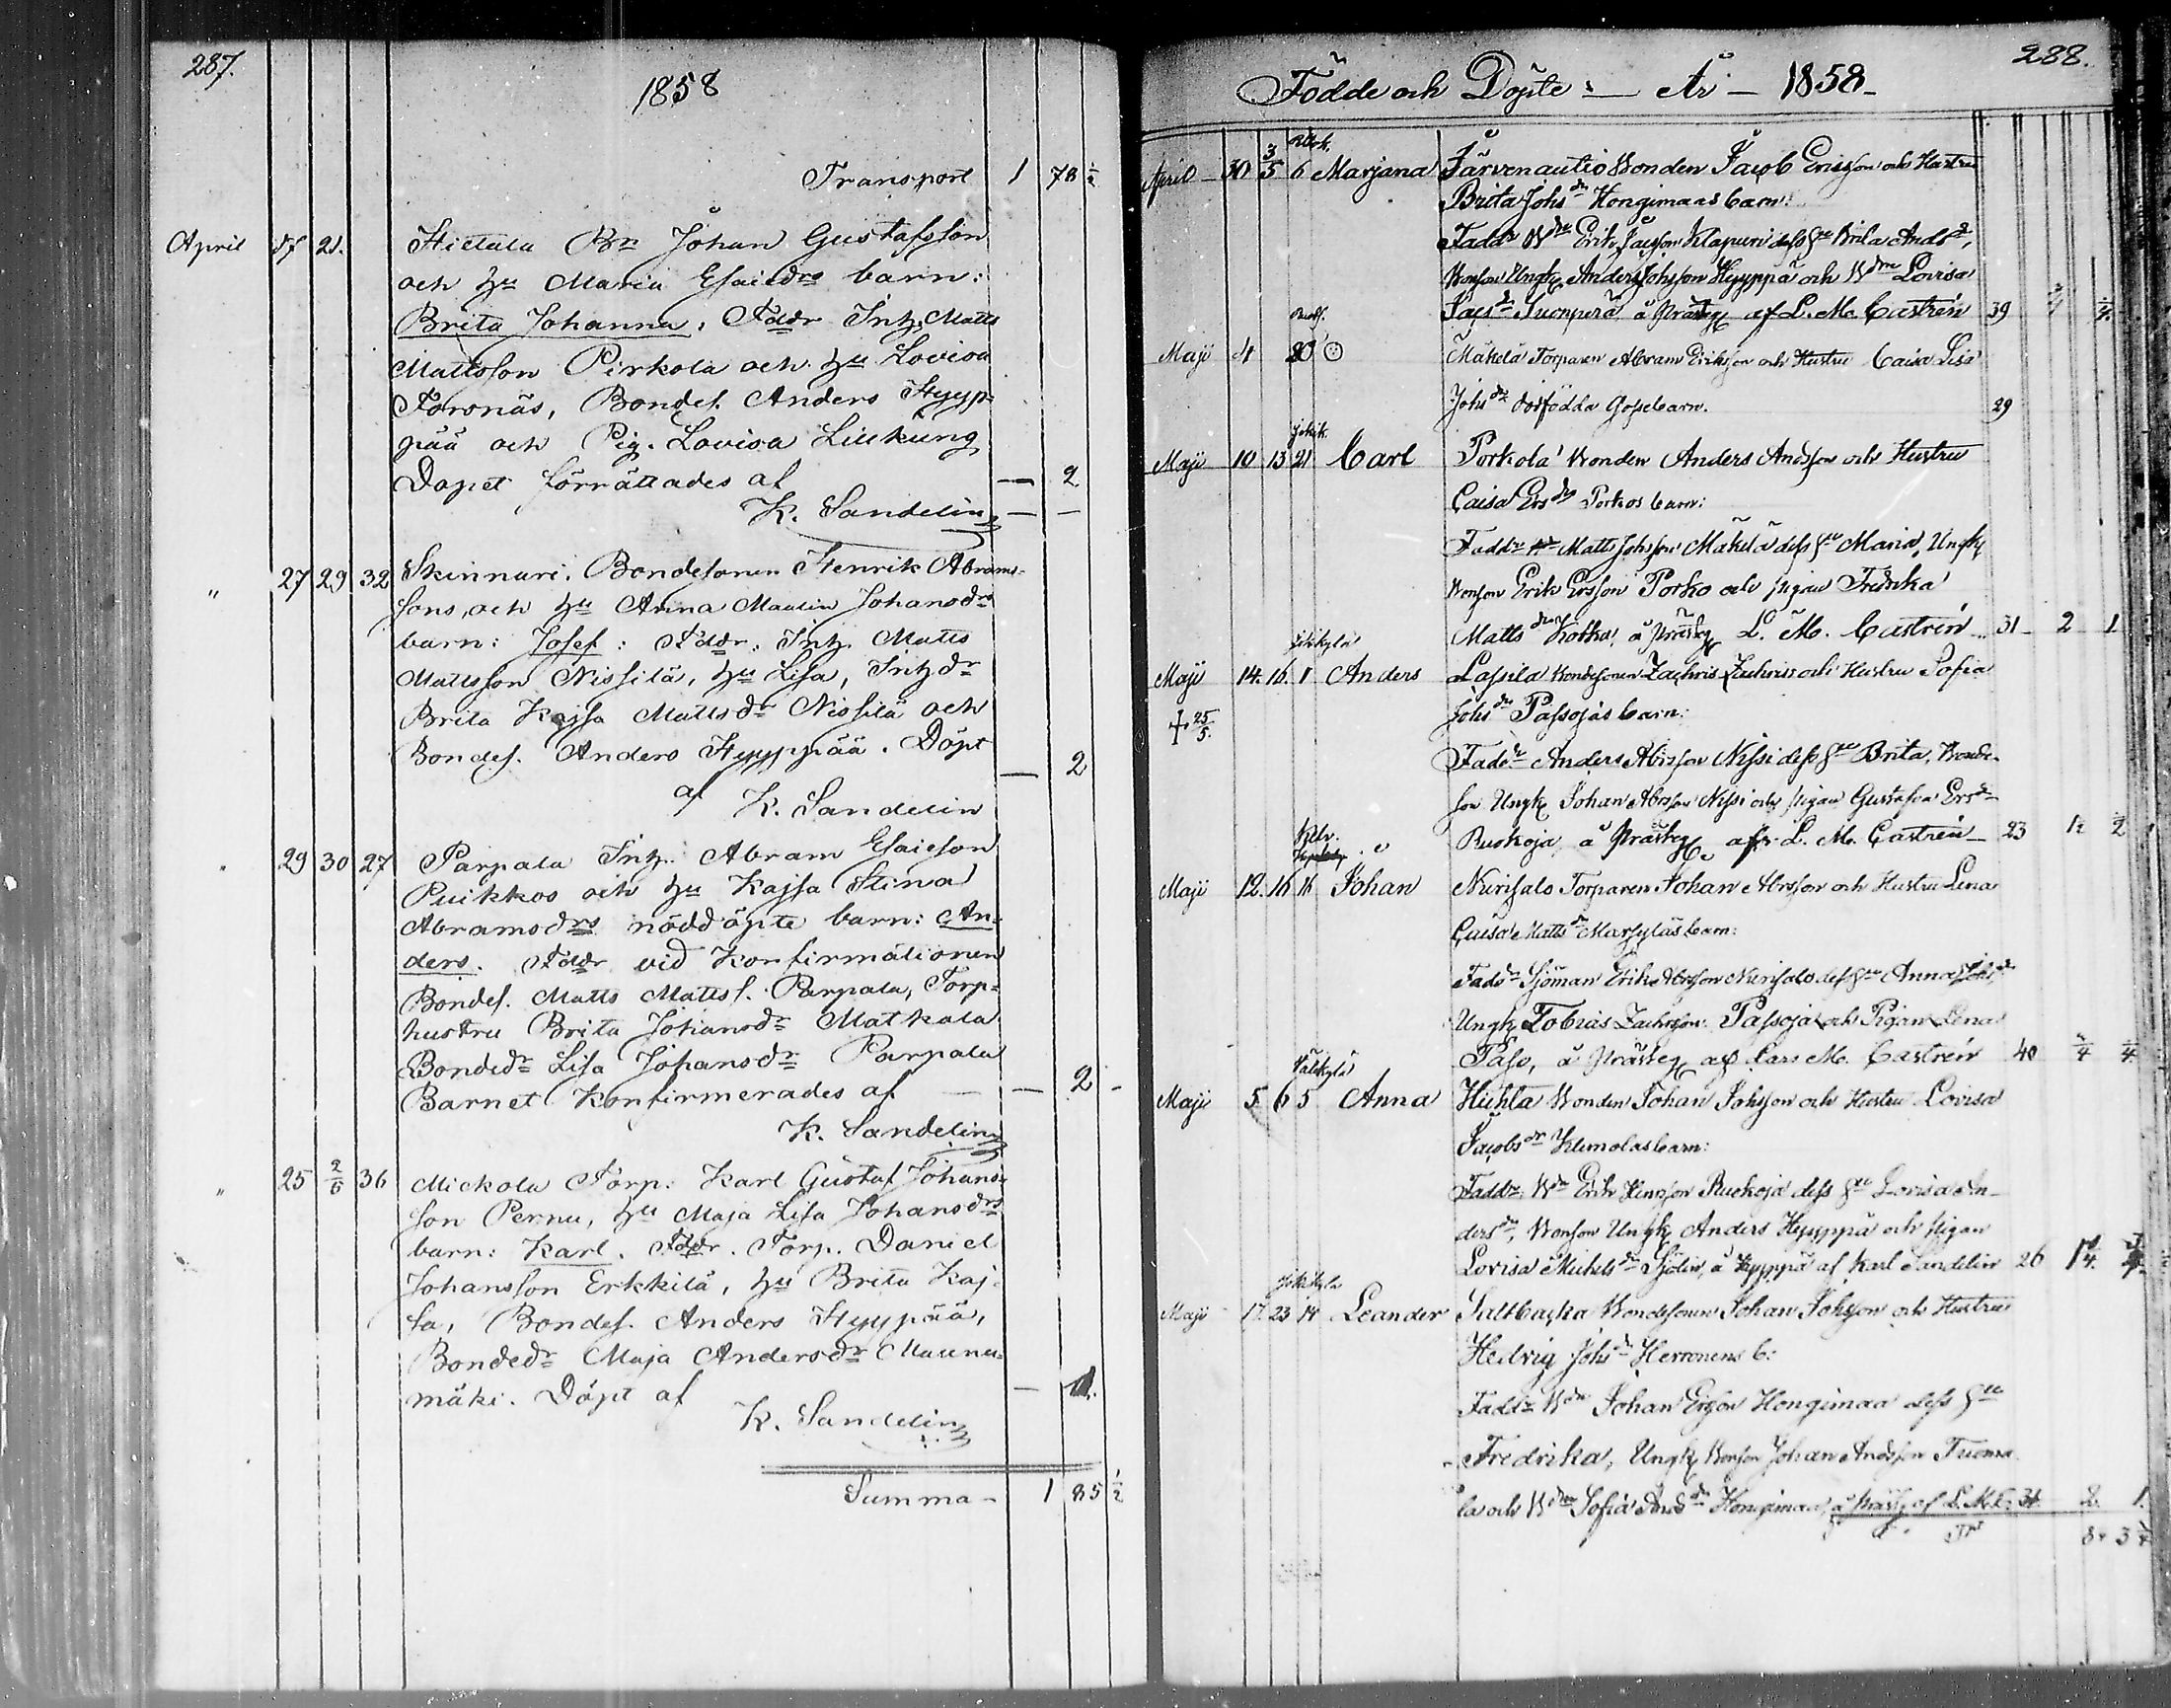 287.
1858
Transport 1 78 1/2
April 17 21. Hietala Bn Johan Gustafsson
och hu Maria Esaiedrs barn:
Brita Johanna, Fddr Inh. Matts
Mattsson Pirkola och hu Lovisa
Toronäs, Bondes. Anders Hyyp-
pää och Pig. Lovisa Liukung
Dopet förrättades af — 2
K. Sandelin — —
" 27 29 32 Skinnari Bondesonen Henrik Abrams-
sons, och hu Anna Maalin Johansdrs
barn: Josef: Fddr. Inh. Matts
Mattsson Nissilä, hu Lisa, Inhdr
Brita Kajsa Mattsdr Nissilä och
Bondes. Anders Hyyppää. Döpt — 2
af K. Sandelin
" 29 30 27 Parpala Inh. Abram Esaieson
Puikkos och hu Kajsa Stina
Abramsdrs nöddöpte barn: An-
ders. Fddr vid Konfirmationen
Bondes. Matts Mattss. Parpala, Torp-
hustru Brita Johansdr Matkala
Bondedr Lisa Johansdr Parpala
Barnet Konfirmerades af — 2 -
K. Sandelin
" 25 2/6 36 Mickola Torp. Karl Gustaf Johans-
son Pernu, hu Maja Lisa Johansdrs
barn: Karl. Fddr. Torp. Daniel
Johansson Erkkilä, hu Brita Kaj-
sa, Bondes. Anders Hyyppää,
Bondedr Maja Andersdr Maunu-
mäki. Döpt af —
K. Sandelin
Summa - 1 85 1/2
288.
Födde och Döpte: — År — 1858 -
April — 30 3/5 6 Marjana Järvenautio Bonden Jacob Ericsson och Hustru
Brita Johs dr Hongimaas barn:
Faddr Bdn Erik Jacsson Klapuri dess hu Brita Ands dr,
Bonson Ungk Anders Johsson Hyyppä och Bdm Lovisa
Jacs dr Tuomperä å Prästg af L. M. Castrén 39
Maji 4 20 Mäkelä Torparen Abram Eriksson och Hustru Caisa Lisa
Johs dr dödfödda Gossebarn. 29
Maji 10 13 21 Carl Porkola Bonden Anders Andsson och Hustru
Caisa Ers drs Porkos barn:
Faddr Matts Johsson Mäkelä dess hu Maria, Ungk
Bonson Erik Ersson Porko och pigan Fredrika
Matts dr Kotka, å Prästg L. M. Castrén 31 - 2 1
Jokikylä
Maji 14. 16. 1 Anders Lassila Bondesonen Zachris Zachriss och Hustru Sofia
† 25/5. Johs dr Passojas barn:
Faddr Anders Abrsson Nissi dess hu Brita, Bonde-
son Ungk Johan Abrsson Nissi och pigan Gustafva Ers dr
Ruokoja, å Prästg af L. M. Castrén — 23
Maji 12. 16 16 Johan Nurisalo Torparen Johan Abrsson och Hustru Lena
Caisa Matts dr Marjyläs barn:
Faddr Sjöman Erik Abrsson Nurisalo dess hu Anna Johs dr
Ungk Tobias Zachrsson Passoja och Pigan Lena
Paso, å Prästg af Lars M. Castrén 40
Maji 5 6 5 Anna Huhta Bonden Johan Johsson och Hustru Lovisa
Jacobs dr Klemolas barn:
Faddr, Bdn Erik Henrsson Ruokoja dess hu Lovisa An-
ders dr, Bonson Ungk Anders Hyyppä och pigan
Lovisa Michels dr Sjölin, å Hyyppä af Karl Sandelin 26
Jokikylä
Maji 17. 23 14 Leander Saltbacka Bondesonen Johan Johsson och Hustru
Hedvig Johs dr Herronens b:
Faddr Bdn Johan Ersson Hongimaa dess hu
Fredrika, Ungk Bonson Johan Andsson Tuoma-
la och Bdm Sofia Ands dr Hongimaa, å Prästg af L. M. C. 34 2. 1.
Trt 8. 3